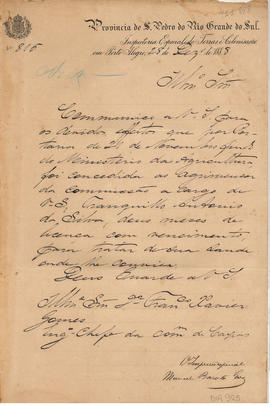 Provincia de S. Pedro do Rio Grande do Sul.
Inspectoria Especial de Terras e Colonisação
em Porto Alegre, 28 de Dezº de 1888
Nº 816
Illmº Snr
Communico a V. S. para
os devidos effeitos que por Por-
taria de 24 de Novembro findo
do Ministerio da Agricultura
foi concedida ao Agrimensor
da commissão a cargo de
V. S. Tranquillo Antonio
da Silva, dous meses de
licença com vencimento,
para tratar de sua saude
onde lhe convier.
Deus Guarde a V. S.
Illmº Snr Dr Franco Xavier
Gomes
Engº Chefe da comm de
O Inspector especial
Manuel